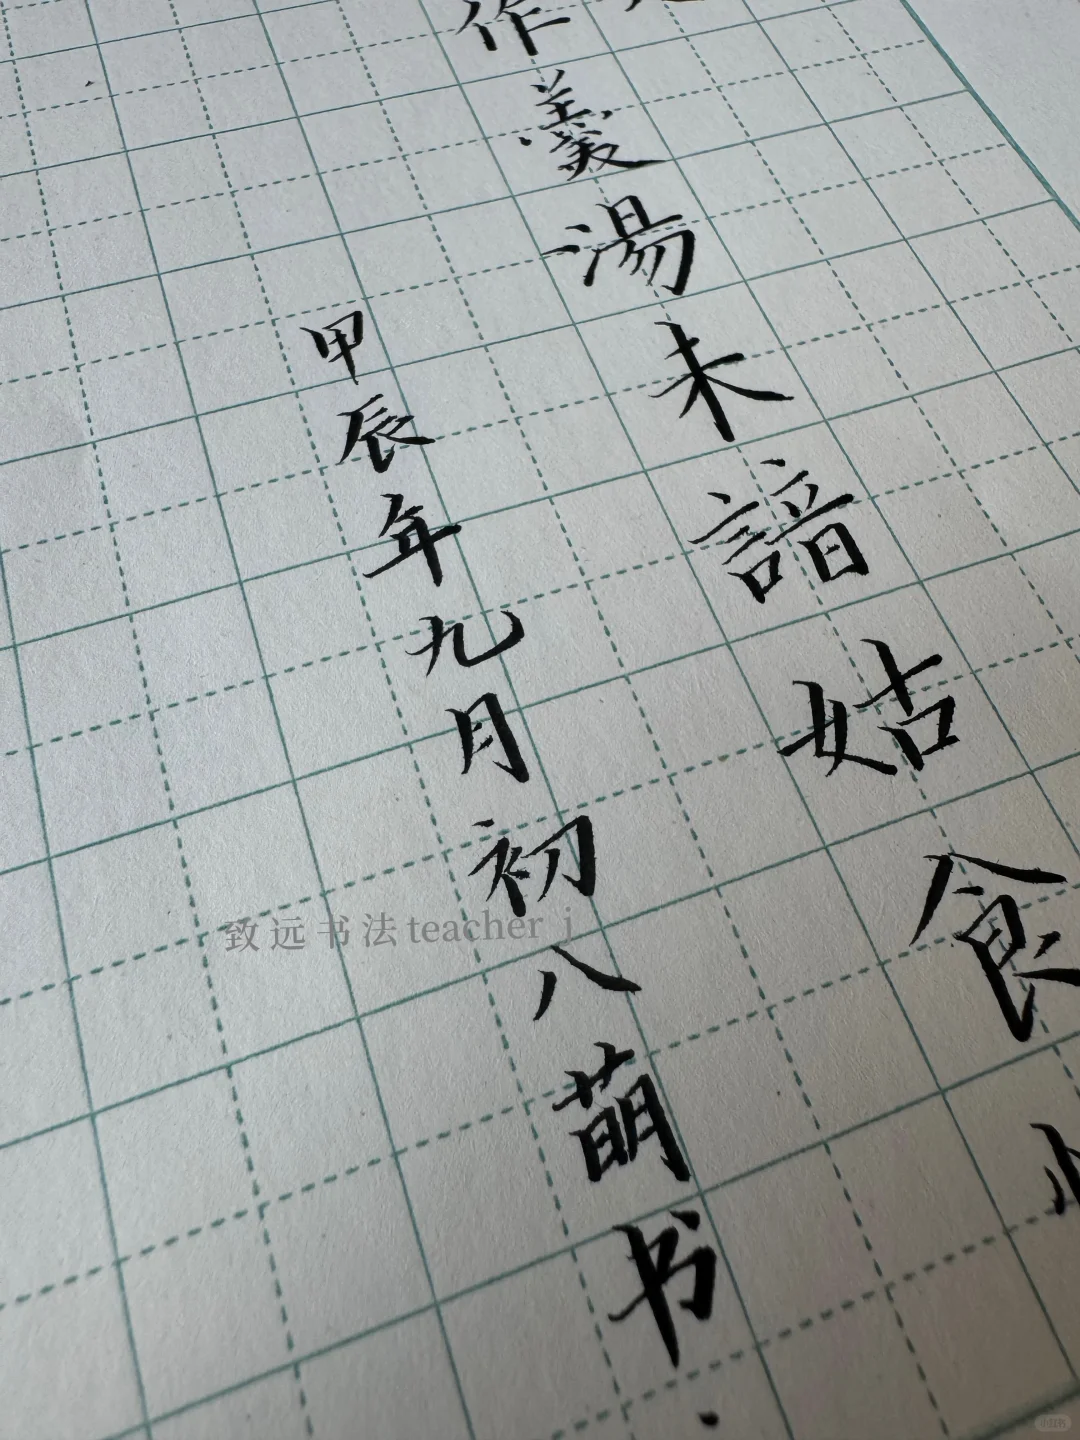 作羹湯未諳姑食
甲辰年九月初八萌书
致远书法teacher j
小红书